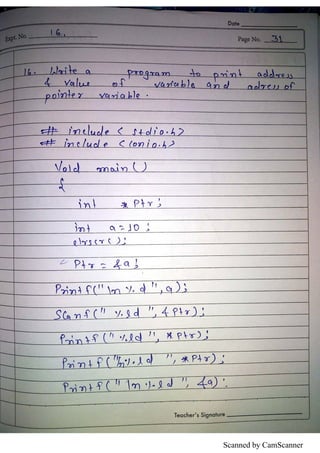 Date
Expt. No. 16.
Page No. 31
16. Write a program to print address
& value of variable and adress of
pointer variable.
# include < stdio.h>
# include < conio.h>
Void main ()
{
int * Ptr;
int a = 10;
clrscr();
Ptr = &a;
Printf("\n %d", a);
Scanf(" %ld ", & Ptr);
Printf (" %ld ", * Ptr);
Printf ("\n%ld ", *Ptr);
Printf (" \n %ld ", &a);
Teacher's Signature
Scanned by CamScanner